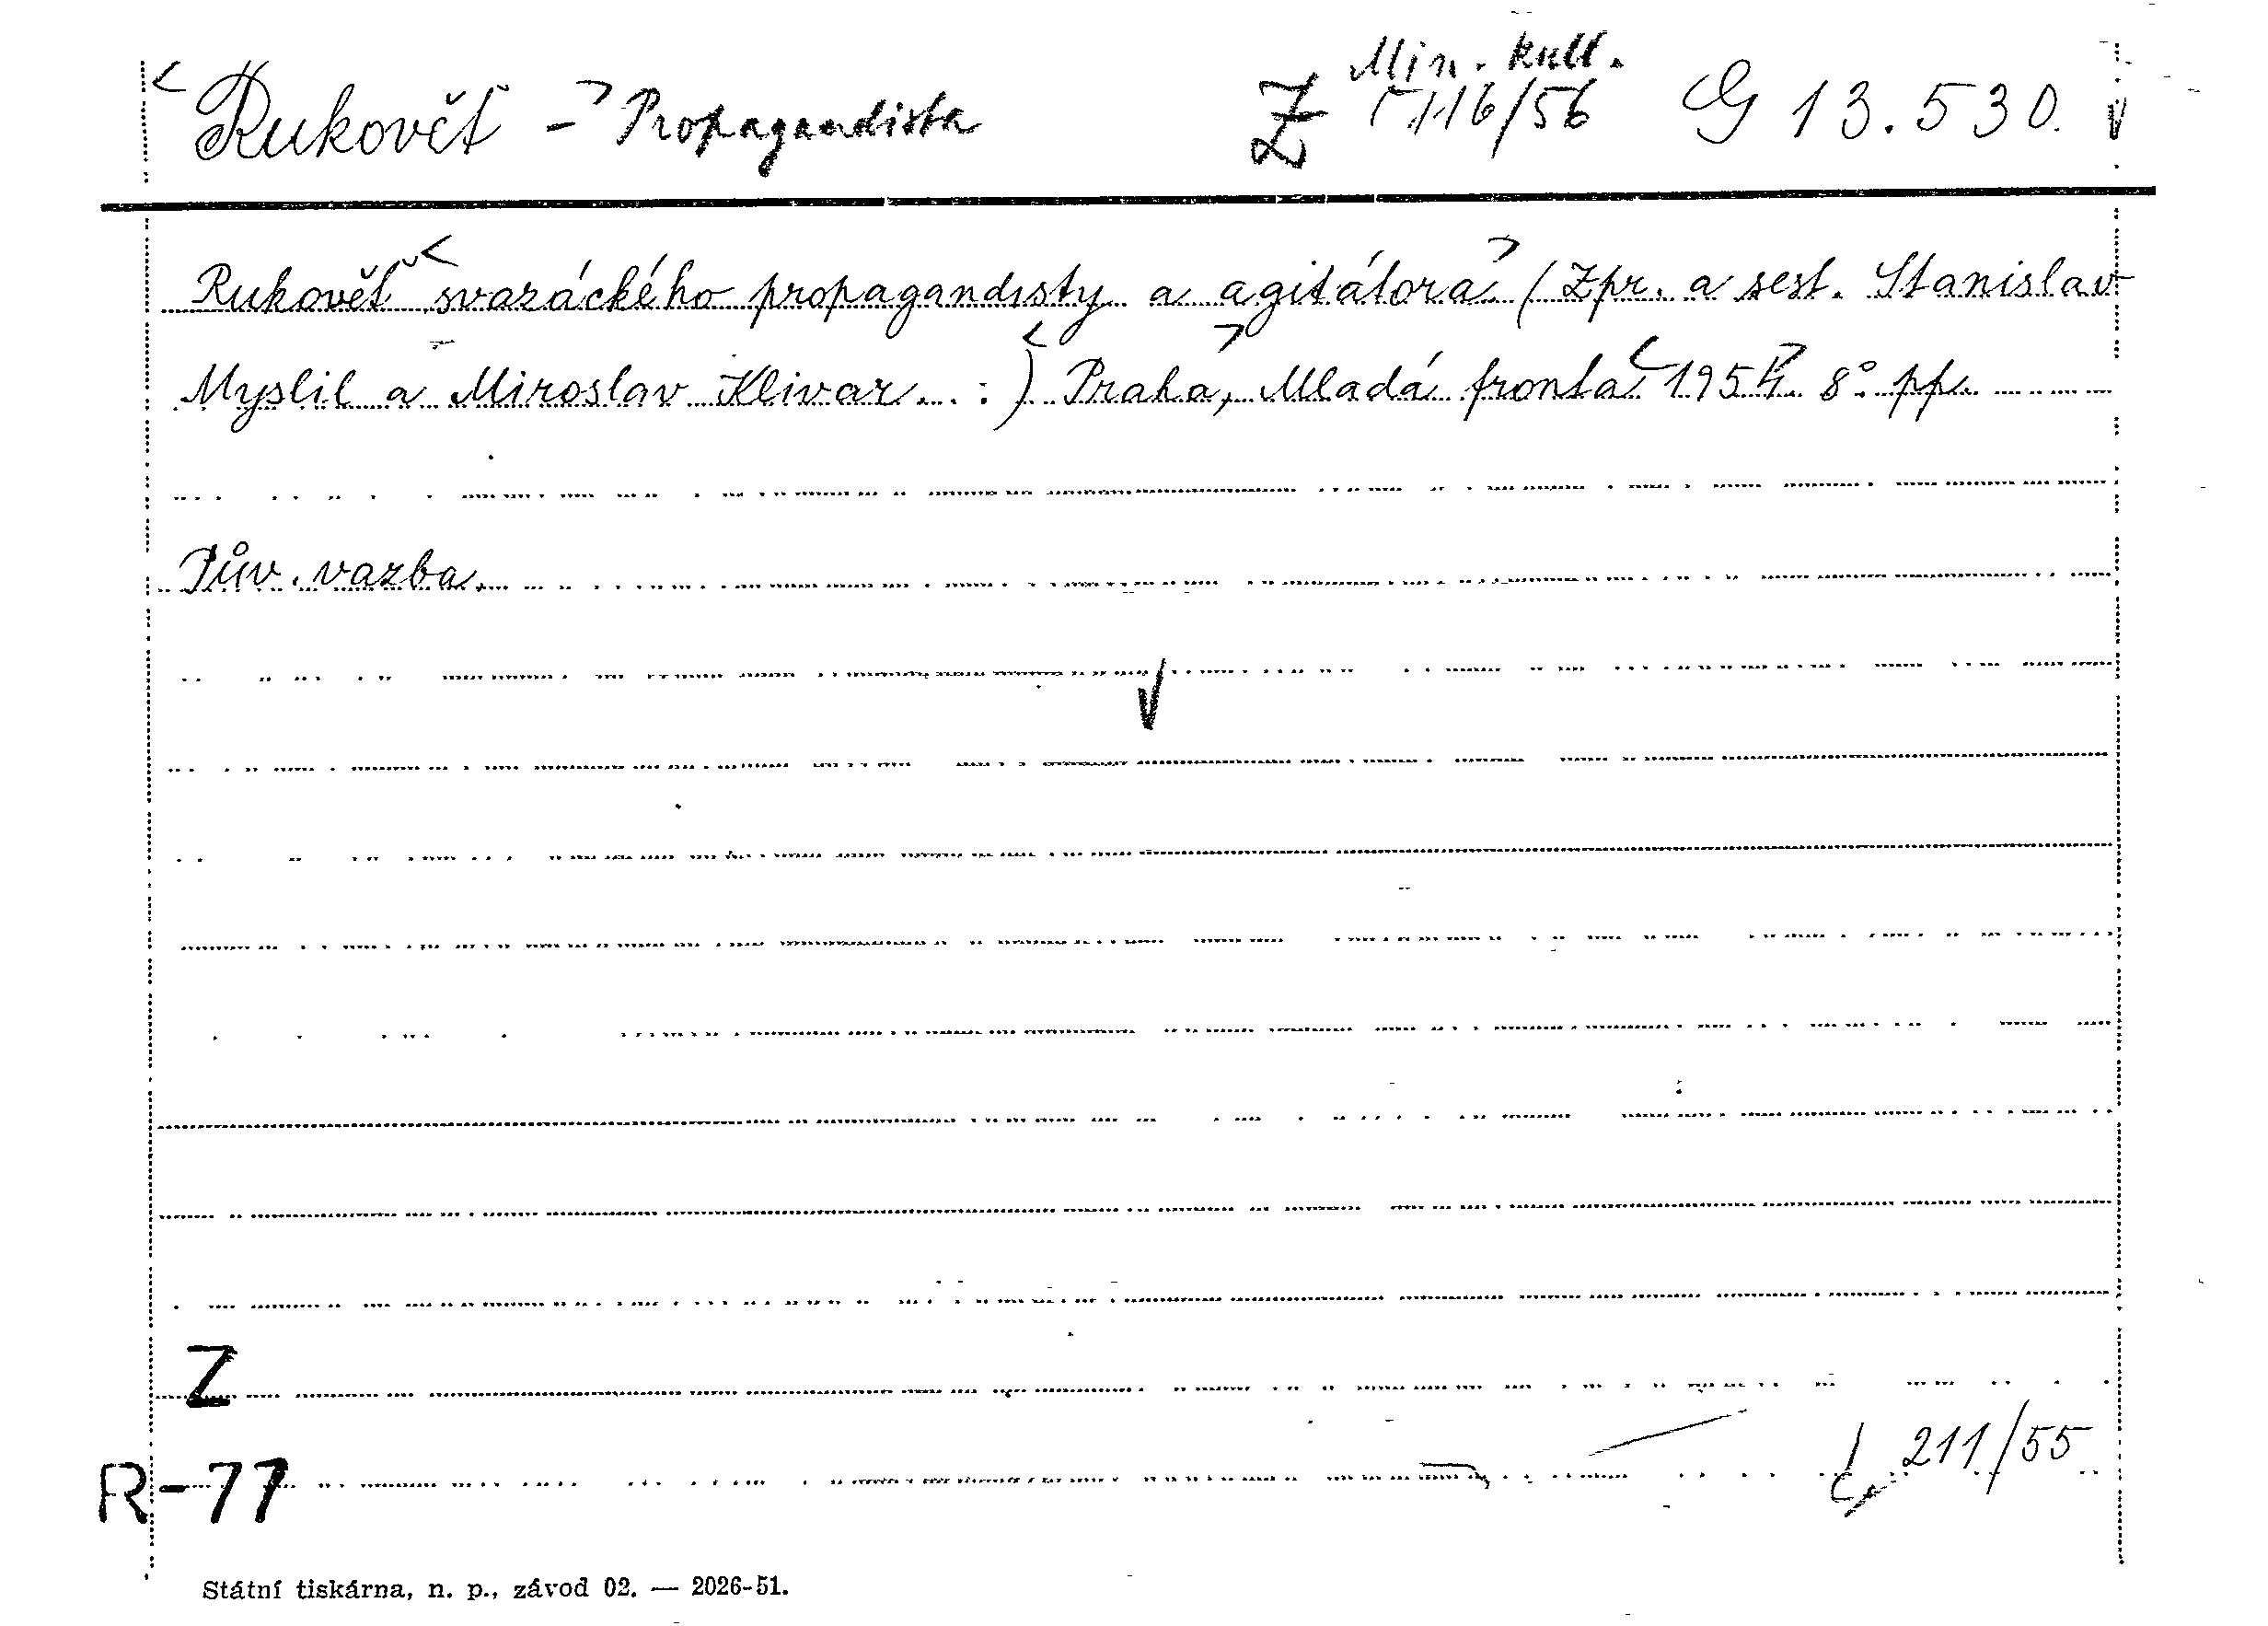 Rukověť - Propagandista Z Min. kult. G 13.530.
116/56
Rukověť svazáckého propagandisty a agitátora (Zpr. a sest. Stanislav
Myslil a Miroslav Klivar. :) Praha, Mladá fronta 1954. 8° pp.
Pův. vazba.
Z
R-77
211/55
Státní tiskárna, n. p., závod 02. — 2026-51.